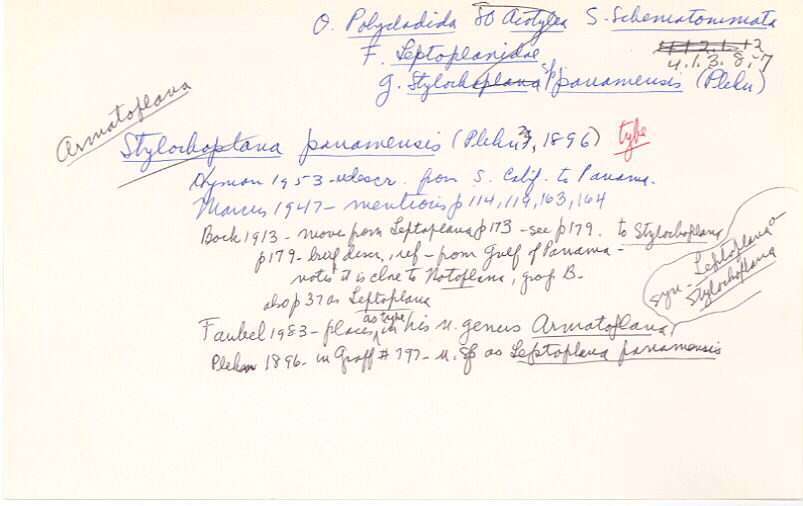 O. Polycladida SO Acotylea S. Schematommata
F. Leptoplanidae 4.1.3.8.7
g. Stylochoplana sp panamensis (Plehn)
Armatoplana
Stylochoplana panamensis (Plehn, 1896) type
Hyman 1953 - redescr. from S. Calif. to Panama.
Marcus 1947 - mentions p 114, 119, 163, 164
Bock 1913 - move from Leptoplana p173 - see p179. to Stylochoplana
p179 - brief descr, ref - from Gulf of Panama -
notes it is close to Notoplana, group B.
also p 37 as Leptoplana
syn - Leptoplana
Stylochoplana
Faubel 1983 - places as type in his n. genus Armatoplana
Plehn 1896 - in Graff # 797 - n. sp as Leptoplana panamensis